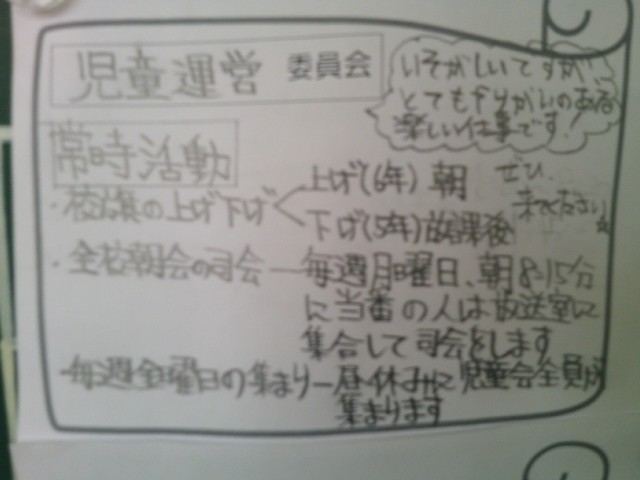 児童運営 委員会
いそがしいですが、
とてもやりがいのある
楽しい仕事です!
ぜひ
来てください
常時活動
・校旗の上げ下げ
上げ(6年) 朝
下げ(5年)放課後
・全校朝会の司会ー毎週月曜日、朝8:15分
に当番の人は放送室に
集合して司会をします
・毎週金曜日の集まりー昼休みに児童会全員が
集まります